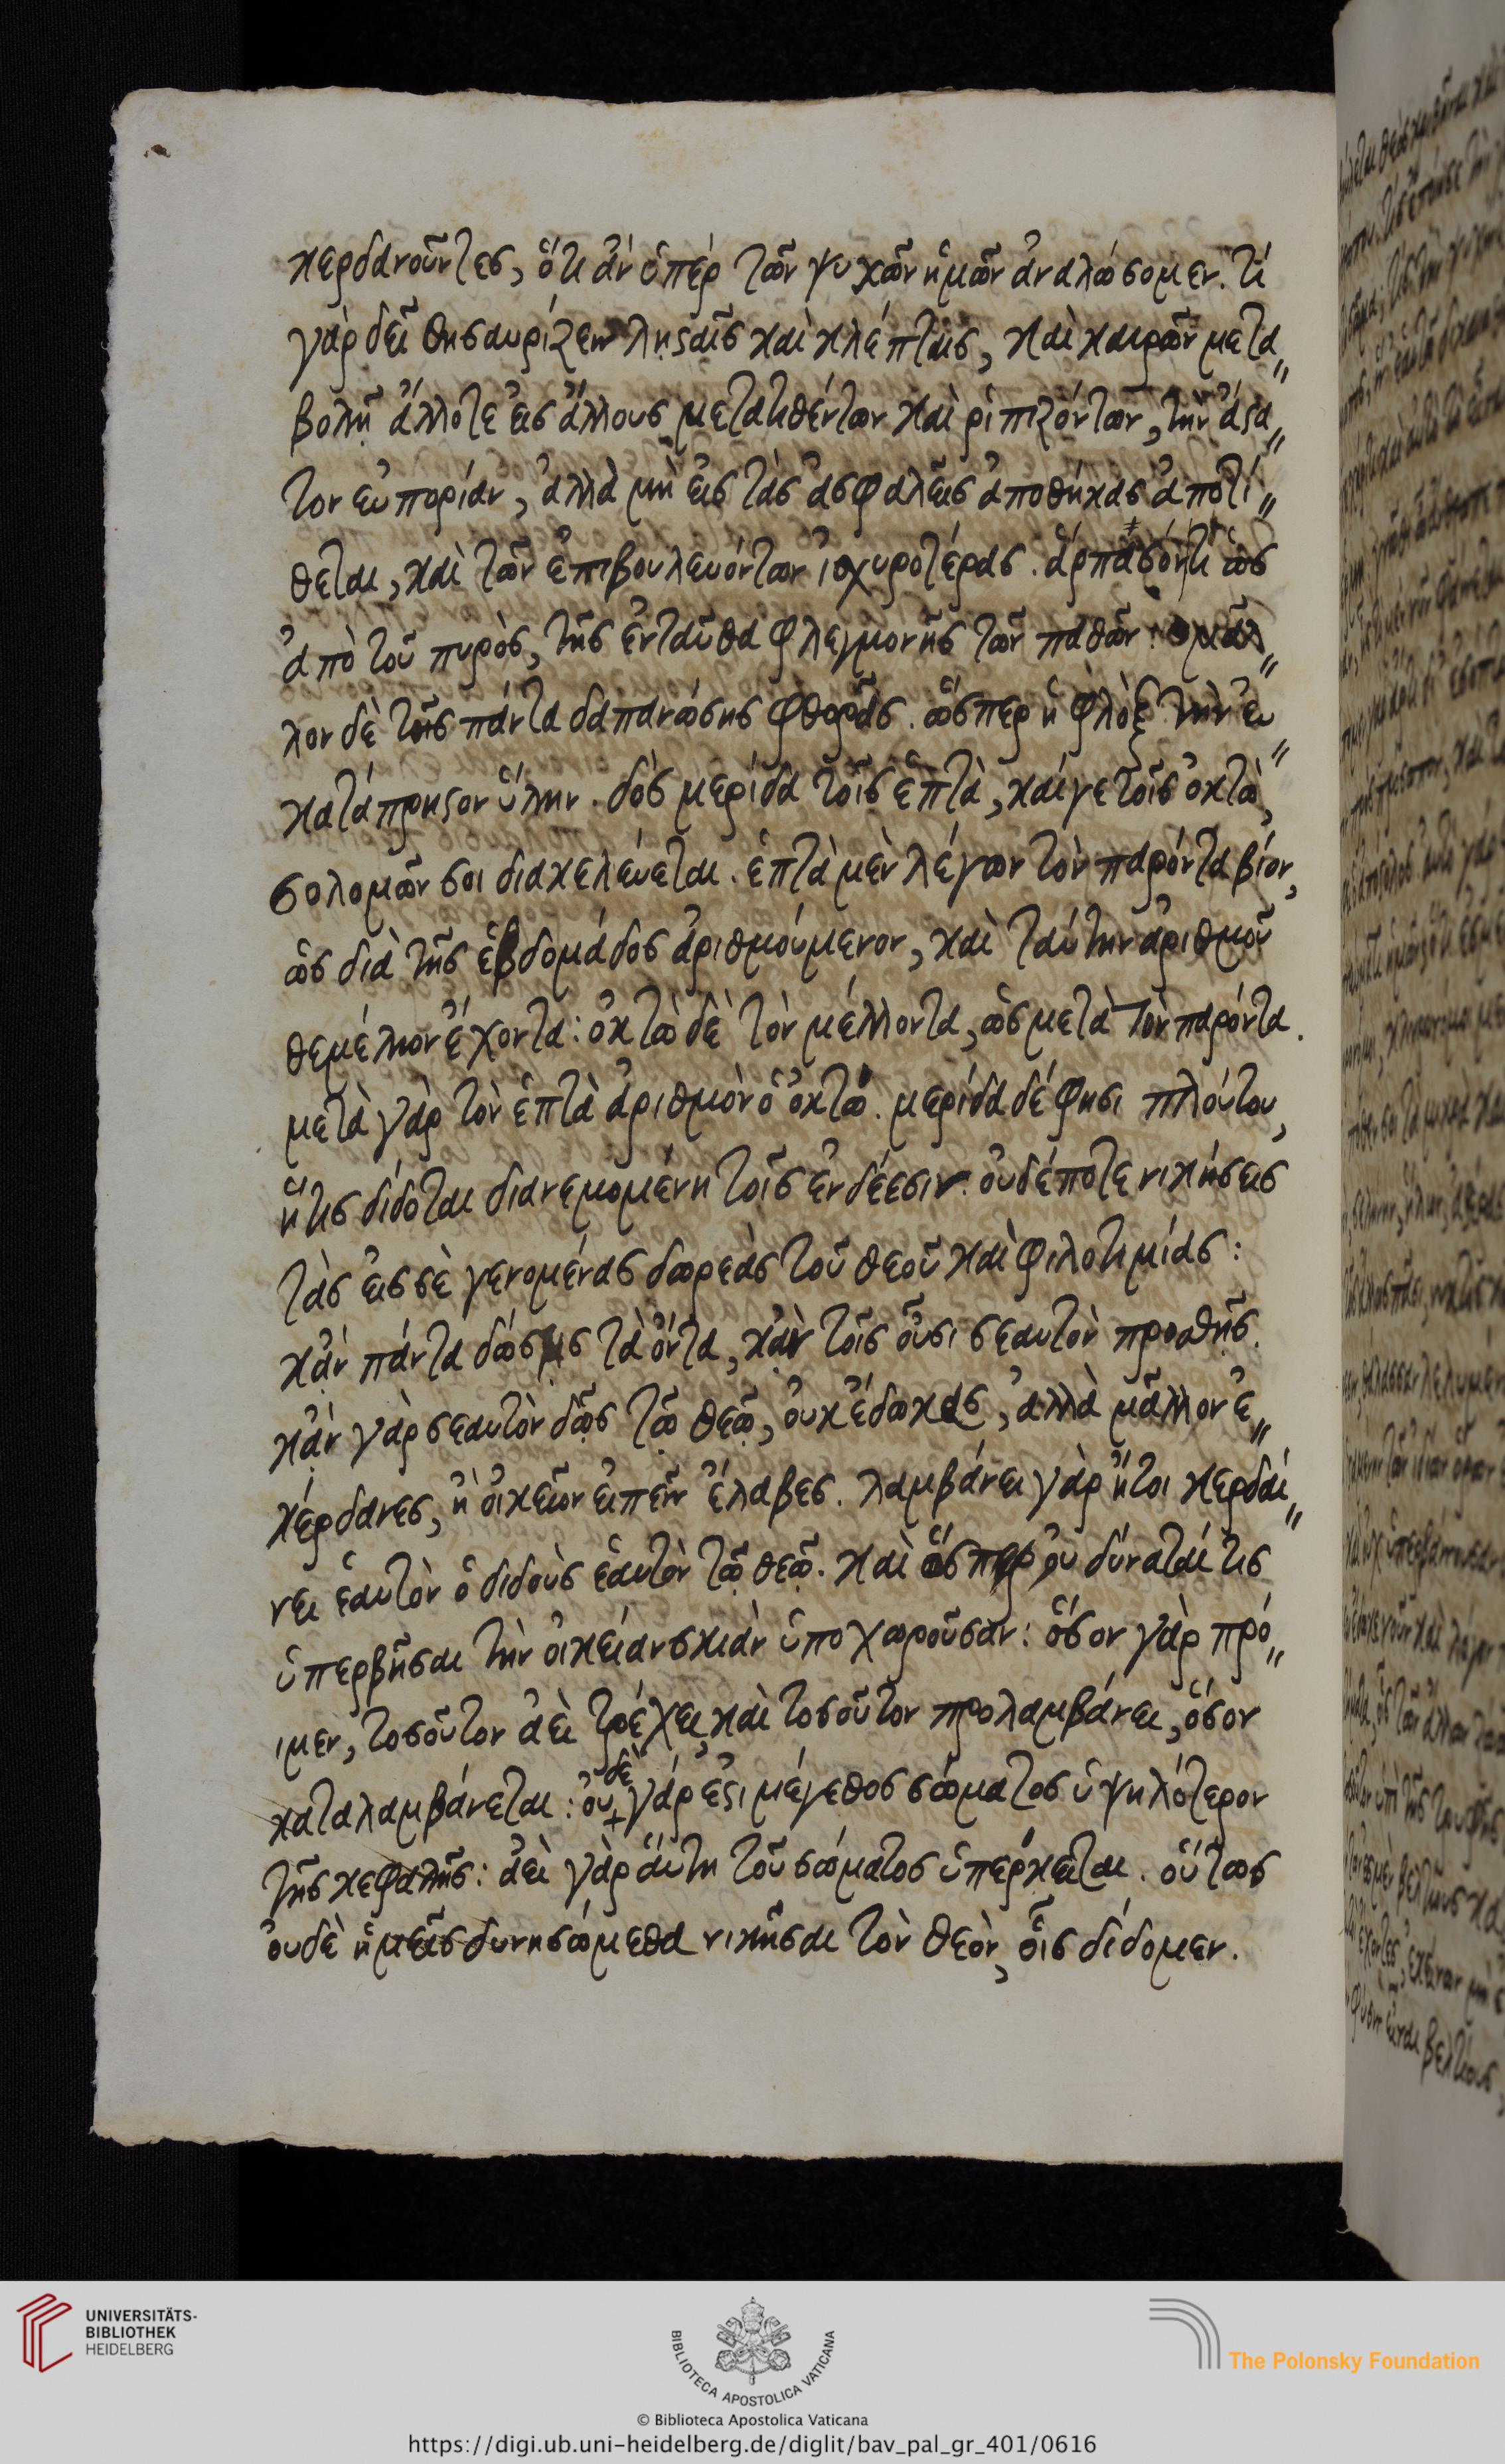 κερδανοῦντες, ὅτι ἂν ὑπὲρ τῶν ψυχῶν ἡμῶν ἀναλώσομεν. τί
γὰρ δεῖ θησαυρίζειν λῃσταῖς καὶ κλέπταις, καὶ καιρῶν μετα〃
βολῇ ἄλλοτε εἰς ἄλλους μετατιθέντων καὶ ῥιπιζόντων, τὴν ἄστα〃
τον εὐπορίαν, ἀλλὰ μὴ εἰς τὰς ἀσφαλεῖς ἀποθήκας ἀποτί〃
θεται, καὶ τῶν ἐπιβουλευόντων ἰσχυροτέρας. ὡς
ἀπὸ τοῦ πυρὸς, τῆς ἐνταῦθα φλεγμονῆς τῶν παθῶν: μᾶλ〃
λον δὲ τῆς πάντα δαπανώσης φθορᾶς. ὥσπερ ἡ φλὸξ τὴν εὐ〃
κατάπρηστον ὕλην. δὸς μερίδα τοῖς ἑπτὰ, καίγε τοῖς ὀκτὼ,
σολομῶν σοι διακελεύεται. ἑπτὰ μὲν λέγων τὸν παρόντα βίον,
ὡς διὰ τῆς ἑβδομάδος ἀριθμούμενον, καὶ ταύτην ἀριθμοῦ
θεμέλιον ἔχοντα: ὀκτὼ δὲ τὸν μέλλοντα, ὡς μετὰ τὸν παρόντα.
μετὰ γὰρ τὸν ἑπτὰ ἀριθμὸν ὁ ὀκτώ. μερίδα δέ φησι πλούτου,
ἥτις δίδοται διανεμομένη τοῖς ἐνδέεσιν. οὐδέποτε νικήσεις
τὰς εἰς σὲ γενομένας δωρεὰς τοῦ θεοῦ καὶ φιλοτιμίας:
κἂν πάντα δώσῃς τὰ ὄντα, κἂν τοῖς οὖσι σεαυτὸν προσθῇς.
κἂν γὰρ σεαυτὸν δῷς τῷ θεῷ, οὐκ ἔδωκας, ἀλλὰ μᾶλλον ἐ〃
κέρδανες, ἢ οἰκεῖον εἰπεῖν ἔλαβες. λαμβάνει γὰρ ἤτοι κερδαί〃
νει ἑαυτὸν ὁ διδοὺς ἑαυτὸν τῷ θεῷ. καὶ ὥσπερ οὐ δύναταί τις
ὑπερβῆσαι τὴν οἰκείαν σκιὰν ὑποχωροῦσαν: ὅσον γὰρ πρό〃
ιμεν, τοσοῦτον ἀεὶ τρέχει, καὶ τοσοῦτον προλαμβάνει, ὅσον
καταλαμβάνεται: οὐδὲ γάρ ἐστι μέγεθος σώματος ὑψηλότερον
τῆς κεφαλῆς: ἀεὶ γὰρ αὕτη τοῦ σώματος ὑπέρκειται. οὕτως
οὐδὲ ἡμεῖς δυνησώμεθα νικῆσαι τὸν θεὸν, οἷς δίδομεν.
UNIVERSITÄTS-
BIBLIOTHEK
HEIDELBERG
BIBLIOTECA APOSTOLICA VATICANA
The Polonsky Foundation
© Biblioteca Apostolica Vaticana
https://digi.ub.uni-heidelberg.de/diglit/bav_pal_gr_401/0616